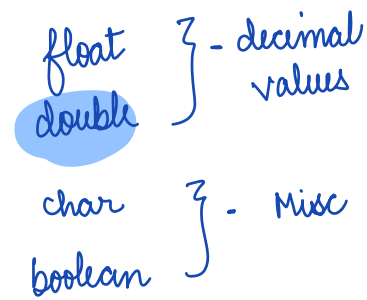 float
double
} - decimal
values
char
boolean
} - Misc